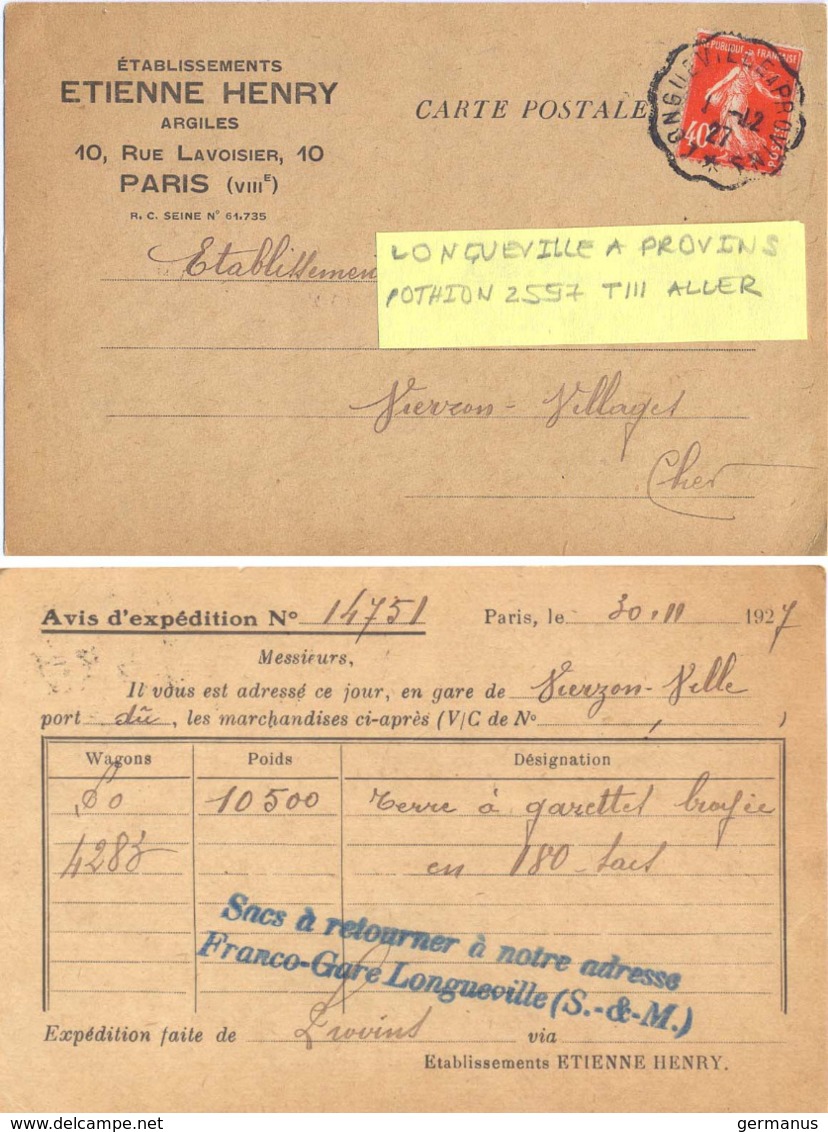 ÉTABLISSEMENTS
ETIENNE HENRY
ARGILES
10, RUE LAVOISIER, 10
PARIS (VIIIE)
R. C. SEINE N° 61.735
CARTE POSTALE
RÉPUBLIQUE FRANÇAISE
40c POSTES
LONGUEVILLE A PROVINS
1 -12
27
Etablissemen
LONGUEVILLE A PROVINS
POTHION 2557 TIII ALLER
Vierzon - Villages
Cher
Avis d'expédition N° 14751 Paris, le 30.11 1927
Messieurs,
Il vous est adressé ce jour, en gare de Vierzon-Ville
port dû, les marchandises ci-après (V/C de N° , )
Wagons Poids Désignation
10500 terre à gazettes broyée
en 180 sacs
Sacs à retourner à notre adresse
Franco-Gare Longueville (S.-&-M.)
Expédition faite de Provins via
Etablissements ETIENNE HENRY.
germanus